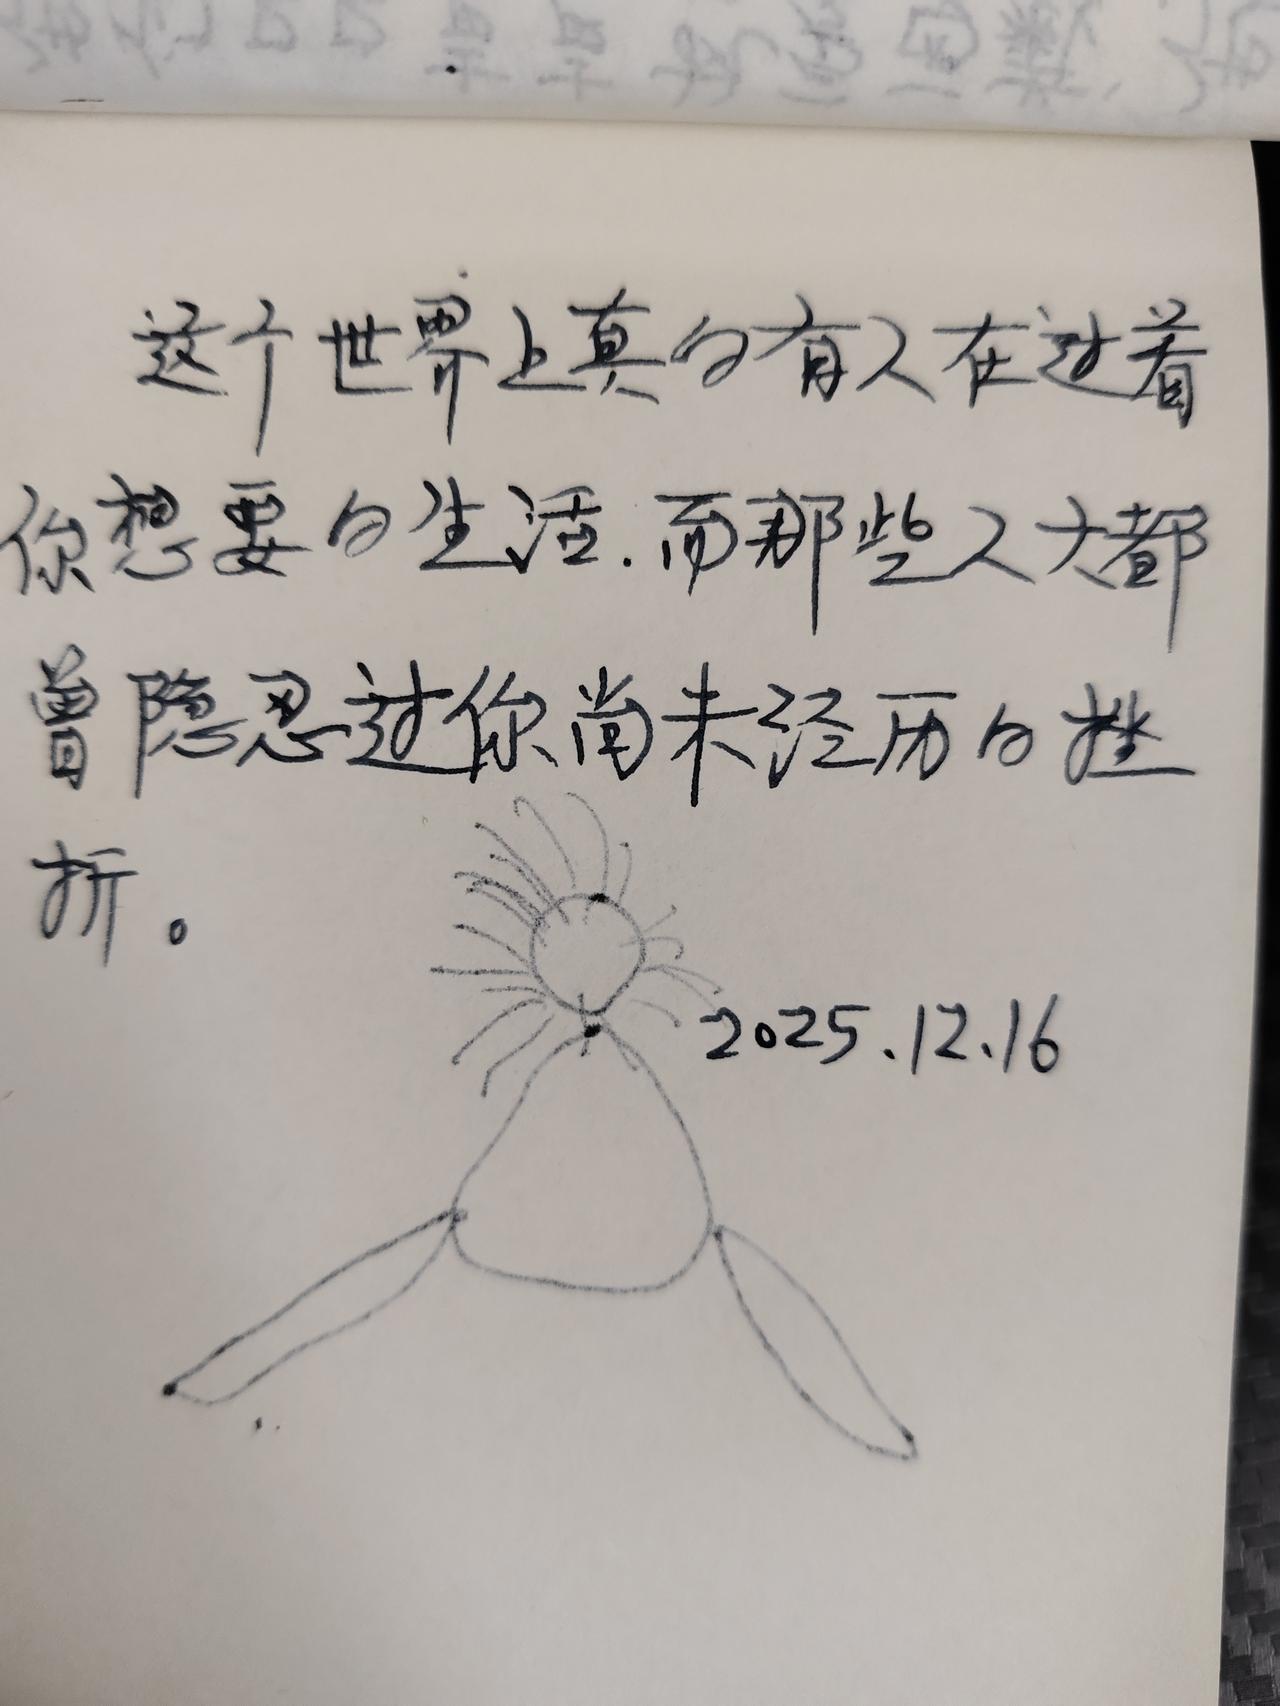 这个世界上真的有人在过着
你想要的生活.而那些人大都
曾隐忍过你尚未经历的挫
折。
2025.12.16